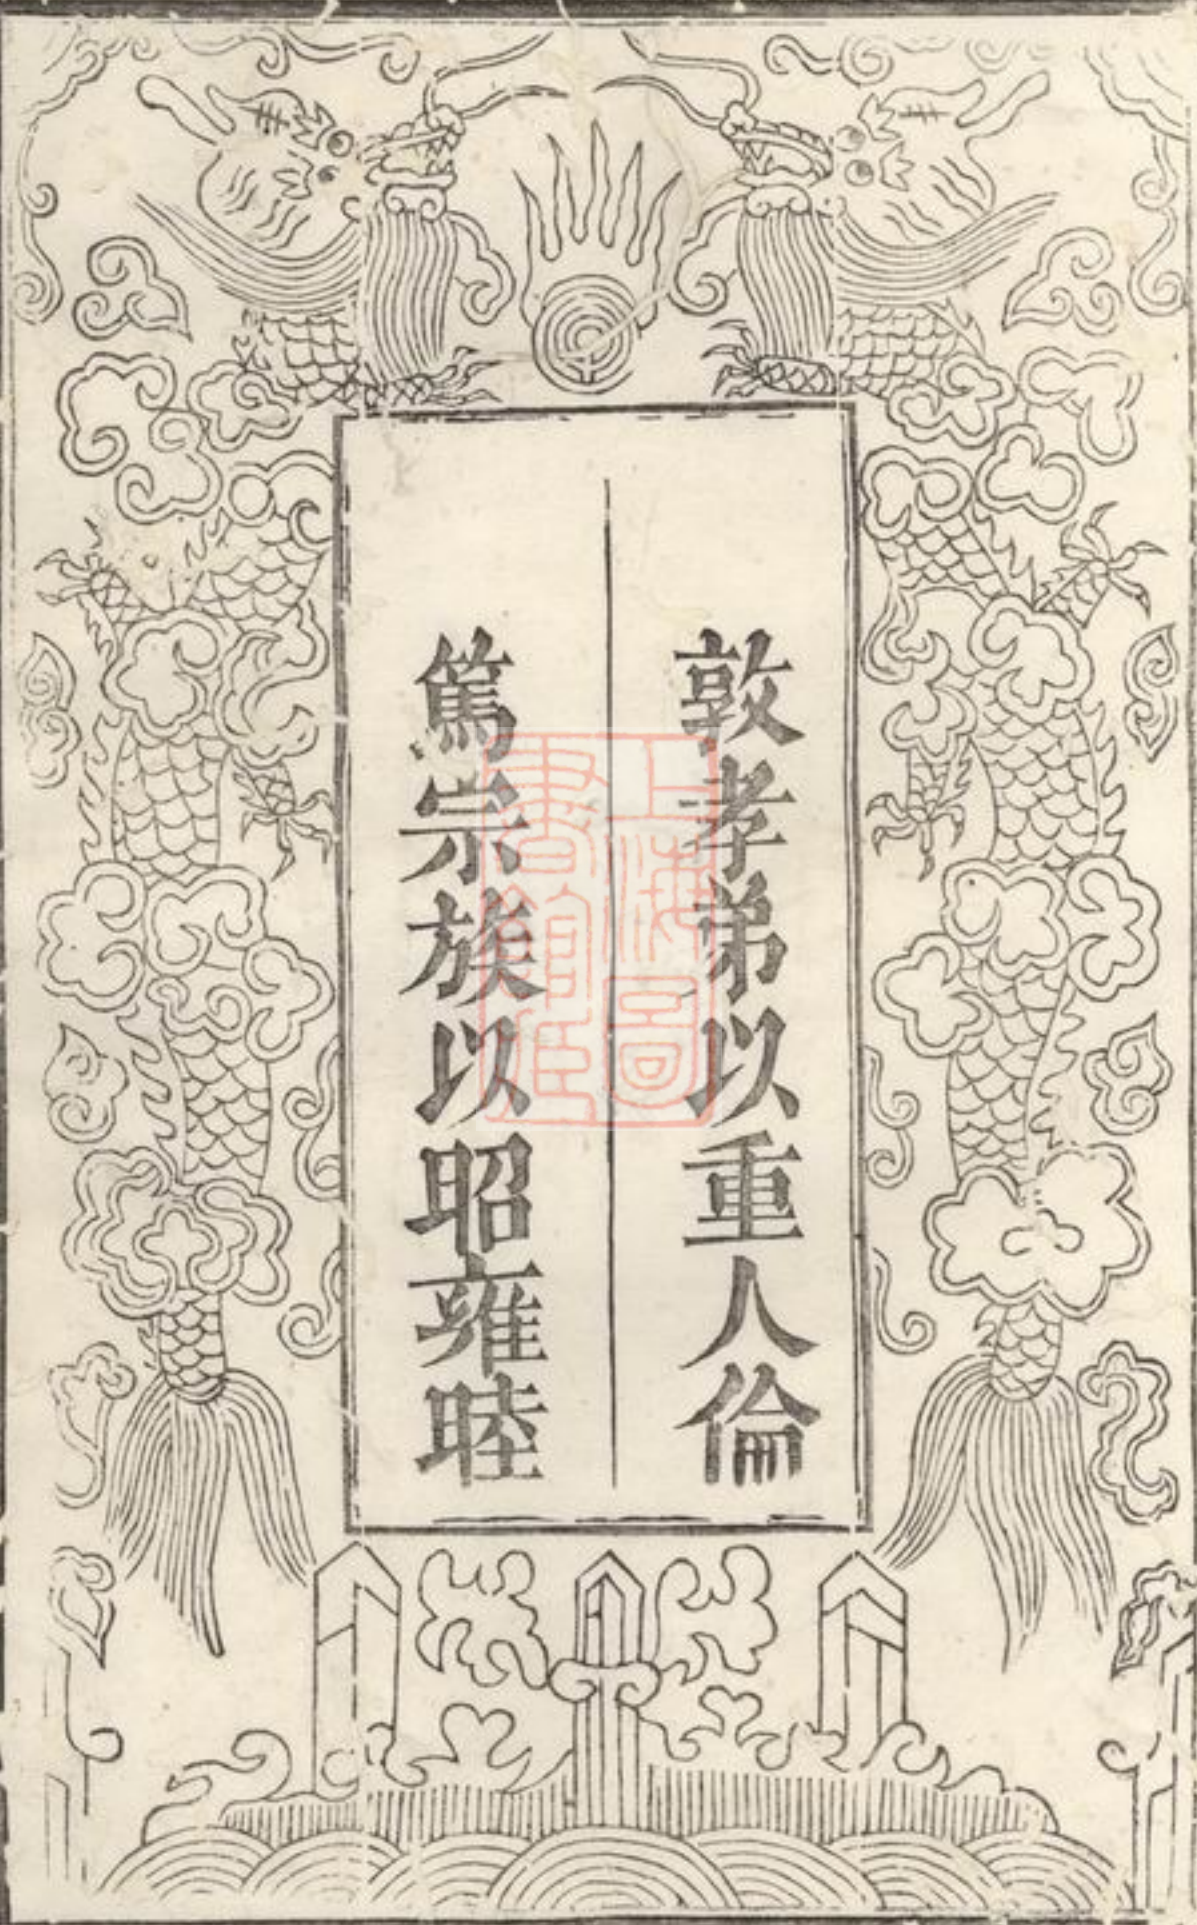 敦孝弟以重人倫
篤宗族以昭雍睦
上海圖
書館藏